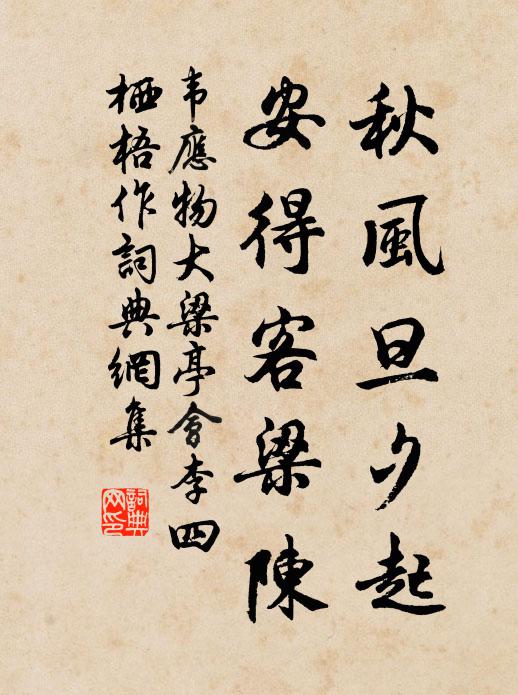 秋風旦夕起
安得客梁陳
韦應物大梁亭會李四
栖梧作詞典網集
詞典網印